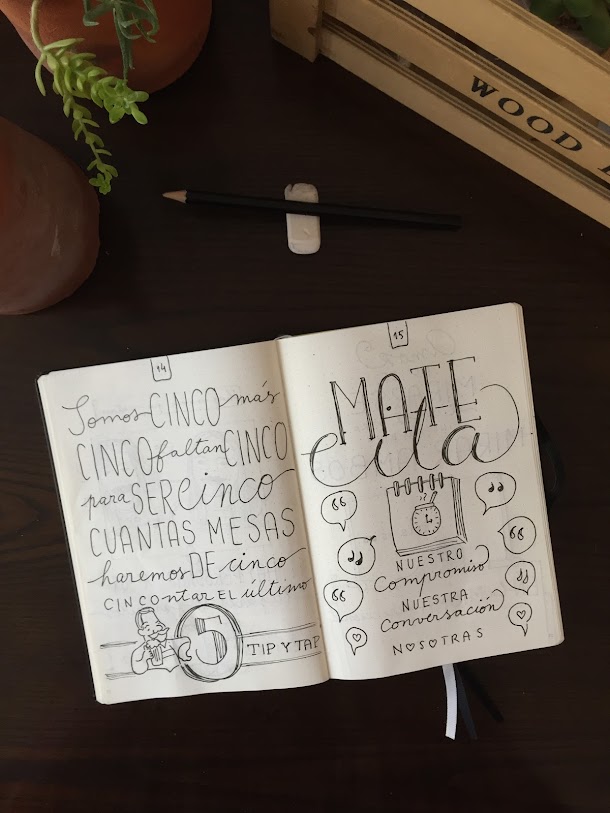 WOOD
14
Somos CINCO más
CINCO faltan CINCO
para SER cinco
CUANTAS MESAS
haremos DE cinco
CINCOntar EL último
5
TIP Y TAP
15
MATE
cita
NUESTRO
Compromiso
NUESTRA
Conversación
NOSOTRAS